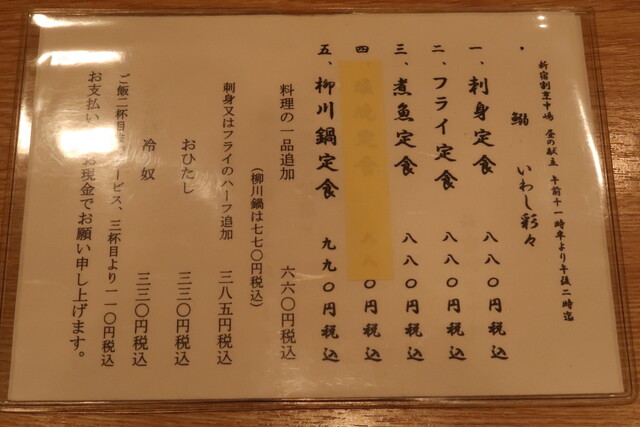 新宿割烹中嶋 昼の献立 午前十一時半より午後二時迄
・ 鰯 いわし彩々
一、刺身定食 八八〇円税込
二、フライ定食 八八〇円税込
三、煮魚定食 八八〇円税込
四 八八〇円税込
五、柳川鍋定食 九九〇円税込
料理の一品追加 六六〇円税込
(柳川鍋は七七〇円税込)
刺身又はフライのハーフ追加 三八五円税込
おひたし 三三〇円税込
冷奴 三三〇円税込
ご飯二杯目サービス、三杯目より一一〇円税込
お支払いお現金でお願い申し上げます。